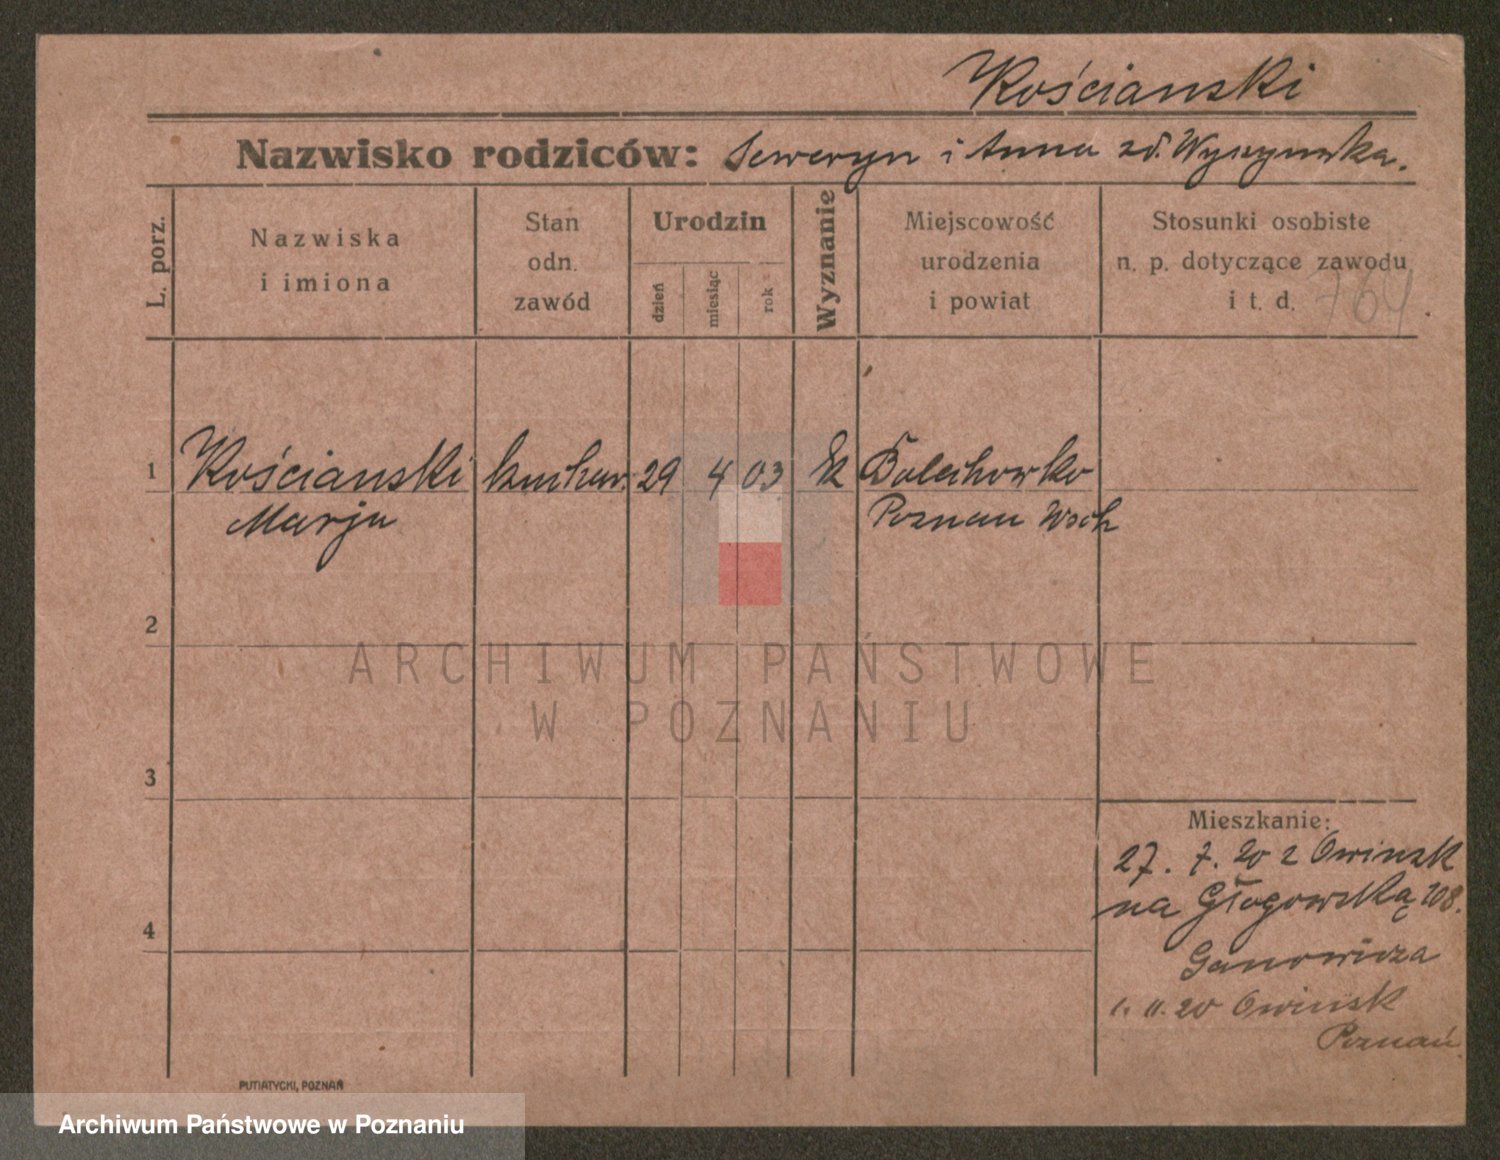 Kościanski
Nazwisko rodziców: Seweryn i Anna zd. Wyszynska.
L. porz.
Nazwiska
i imiona
Stan
odn.
zawód
Urodzin
dzień
miesiąc
rok
Wyznanie
Miejscowość
urodzenia
i powiat
Stosunki osobiste
n. p. dotyczące zawodu
i t. d.
764
1 Kościanski kuchar. 29 4 03 k Bolechowko
Marja Poznan Wsch
2
ARCHIWUM PAŃSTWOWE
W POZNANIU
3
Mieszkanie:
27. 7. 20 z Owinsk
na Głogowską 108.
4
Ganowicza
1. 11. 20 Owinsk
Poznań.
PUTIATYCKI, POZNAŃ
Archiwum Państwowe w Poznaniu